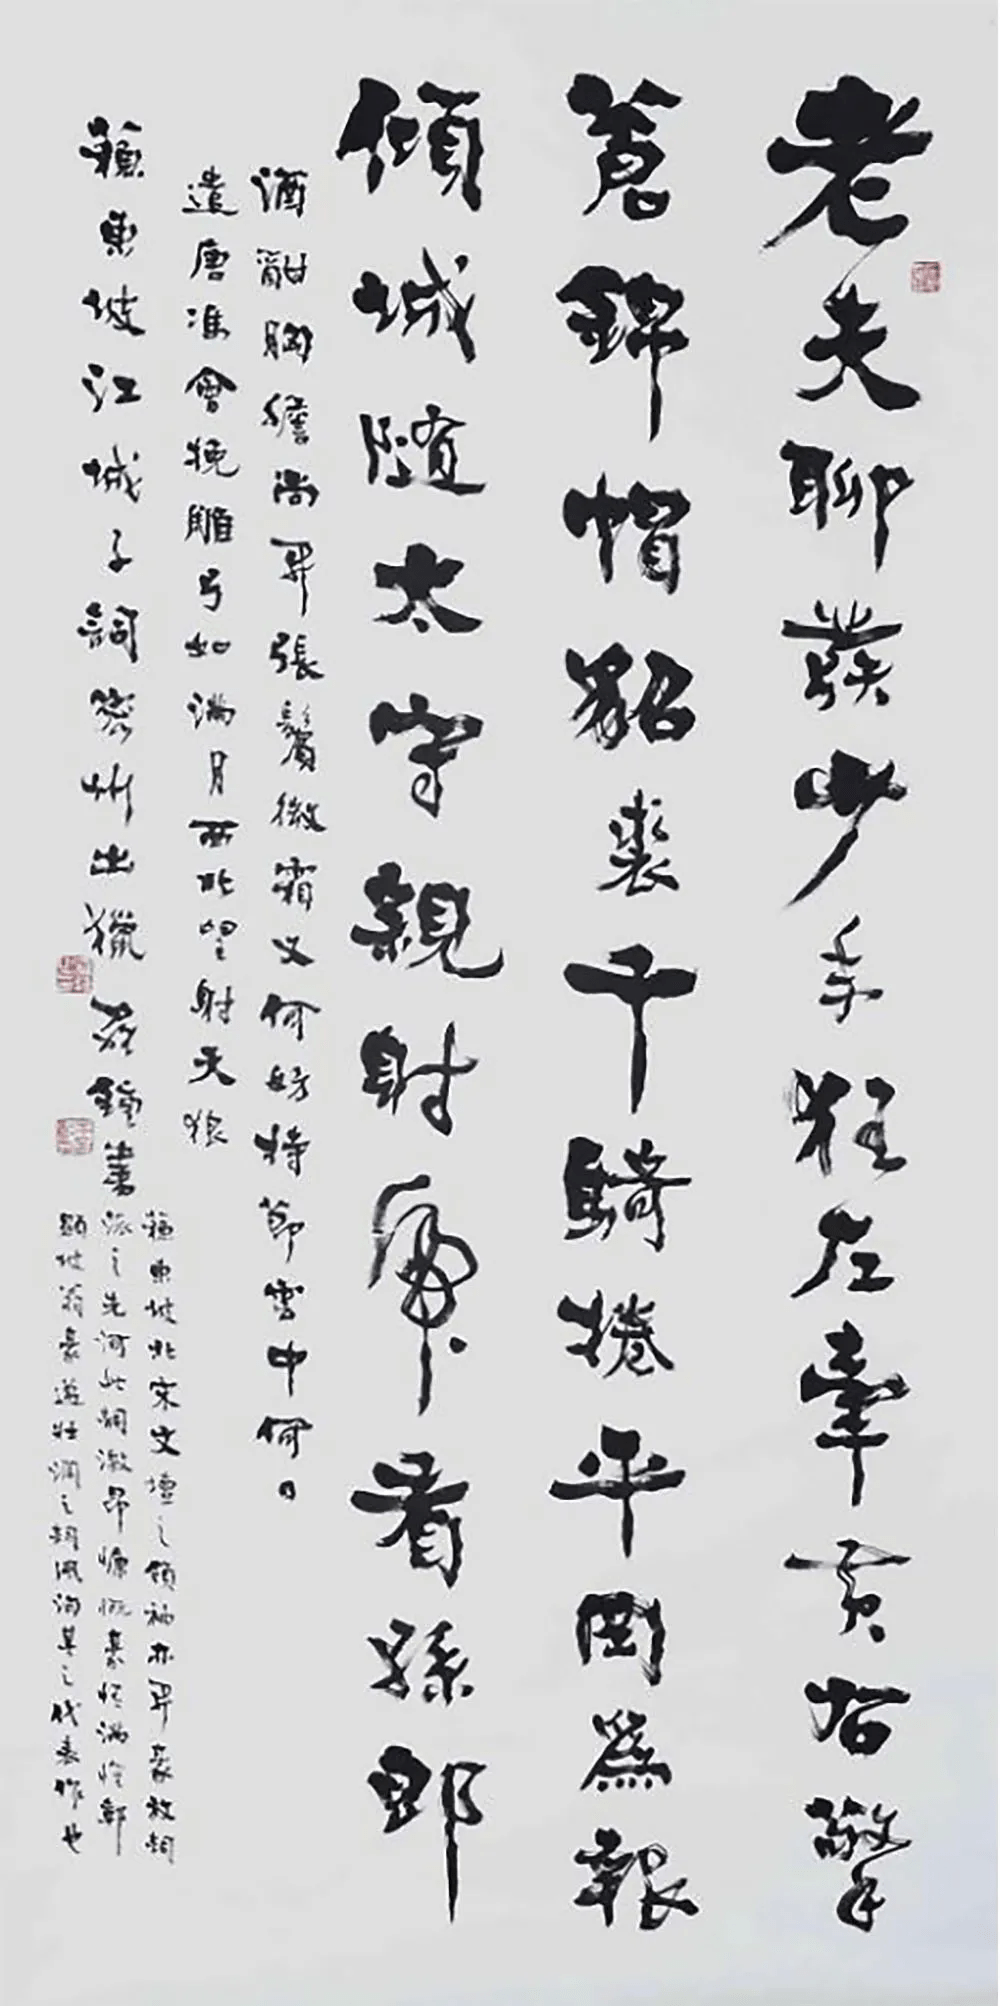 老夫聊發少年狂左牽黃右擎
蒼錦帽貂裘千騎捲平岡為報
傾城隨太守親射虎看孫郎
酒酣胸膽尚開張鬢微霜又何妨持節雲中何日
遣唐馮會挽雕弓如滿月西北望射天狼
蘇東坡江城子詞密州出獵 書
蘇東坡北宋文壇之領袖亦開豪放詞
派之先河此詞激昂慷慨豪情滿懷鄣
顯坡翁豪邁壯闊之詞風洵其之代表作也